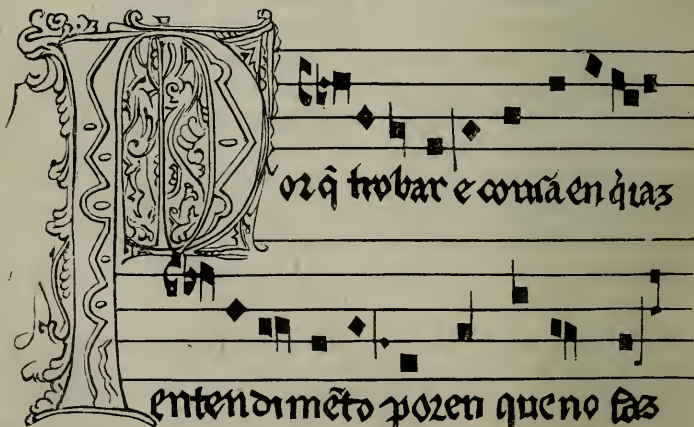 Porq̃ trobar e cousa en q̇ iaz
entendimẽto poren queno faz